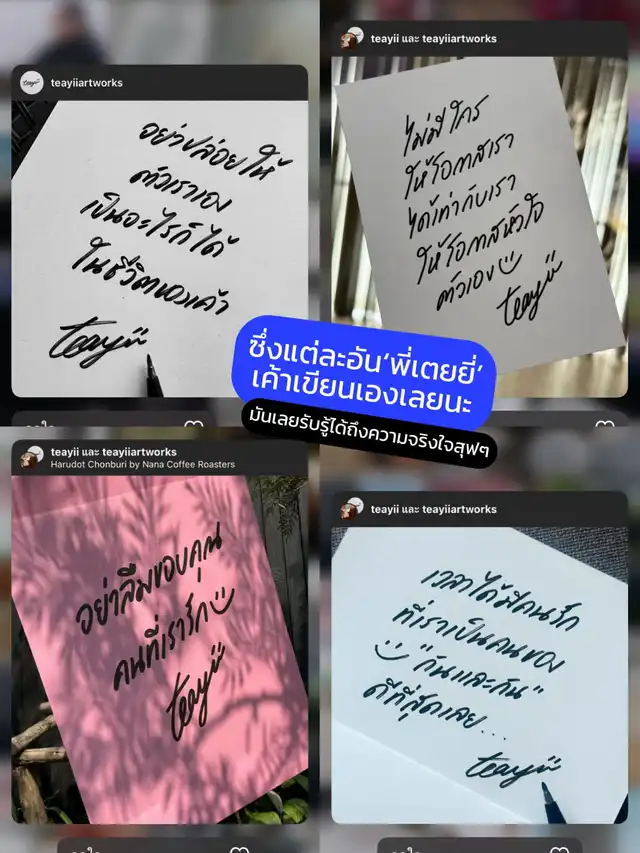 teayiiartworks
อย่าปล่อยให้
ตัวเราเอง
เป็นอะไรก็ได้
ในชีวิตของเค้า
teayii
teayii และ teayiiartworks
ไม่มีใคร
ให้โอกาสเรา
ได้เท่ากับเรา
ให้โอกาสหัวใจ
ตัวเอง
teayii
ซึ่งแต่ละอัน‘พี่เตยยี่‘
เค้าเขียนเองเลยนะ
มันเลยรับรู้ได้ถึงความจริงใจสุฟๆ
teayii และ teayiiartworks
Harudot Chonburi by Nana Coffee Roasters
อย่าลืมขอบคุณ
คนที่เรารัก
teayii
teayii และ teayiiartworks
เวลาได้มีคนรัก
ที่เราเป็นคนของ
"กันและกัน"
ดีที่สุดเลย...
teayii